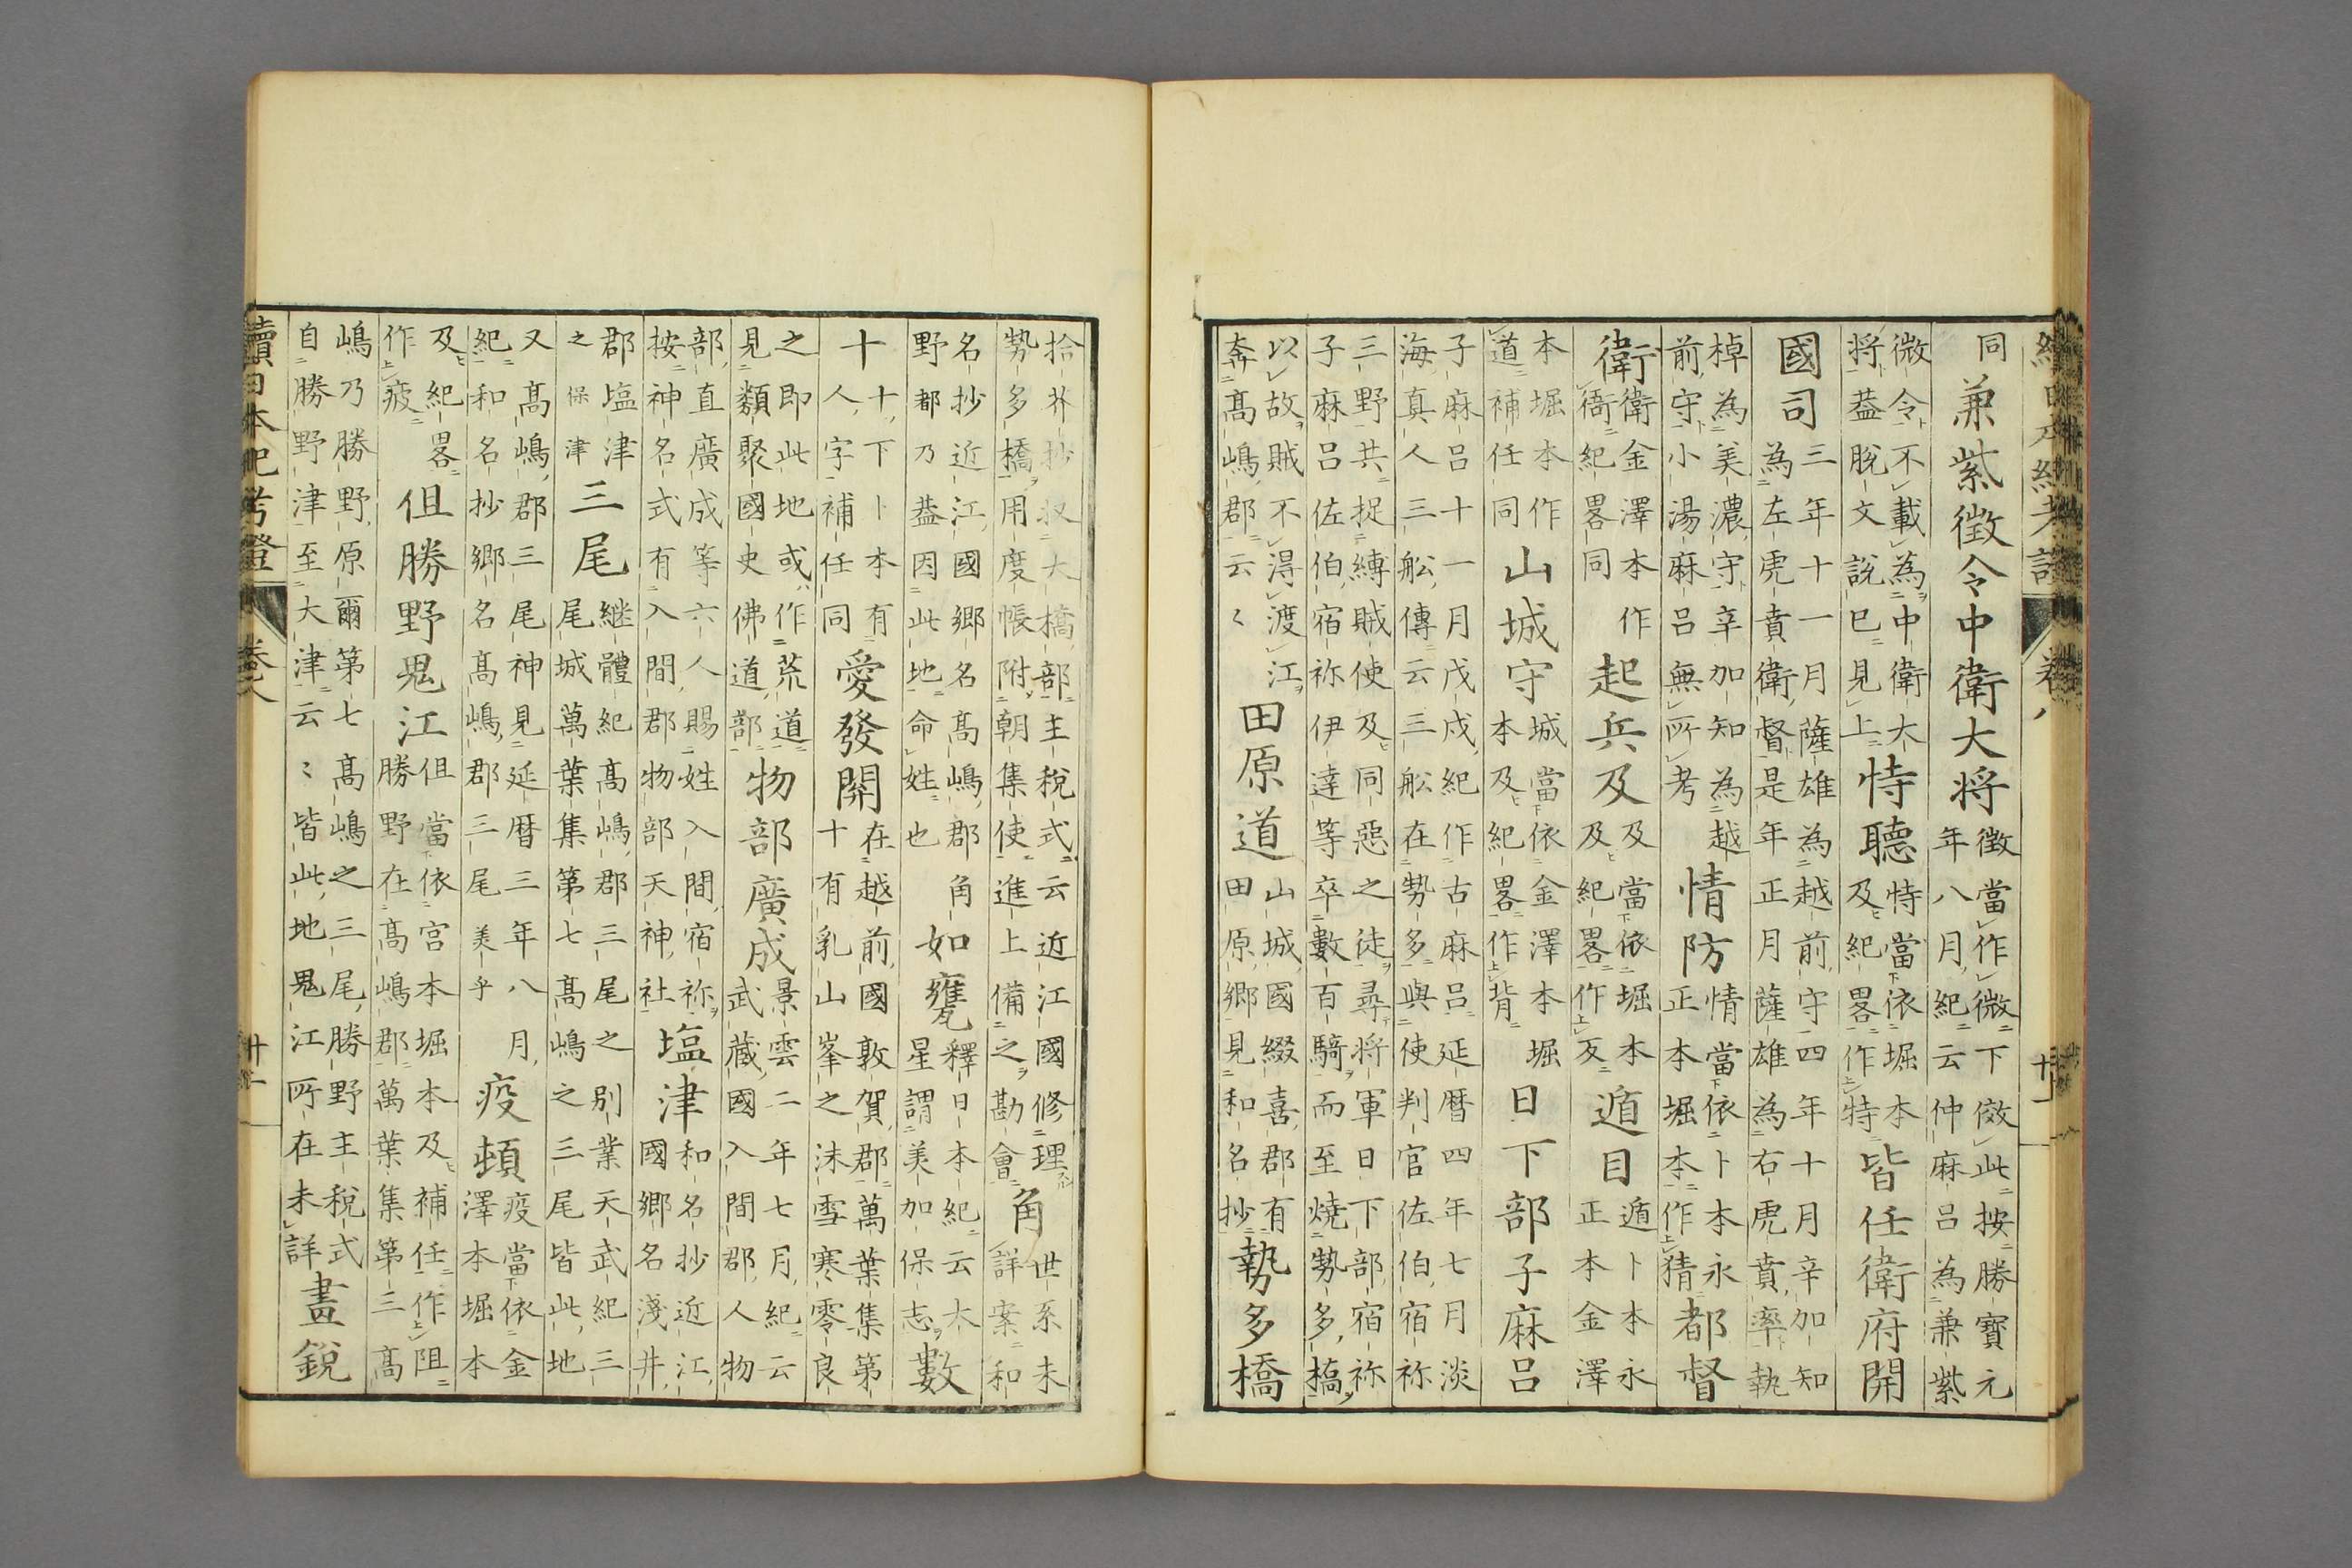 續日本紀考證 卷八 十一
同兼紫徴令中衛大将 徴當作微下倣此按勝寶元
年八月紀云仲麻呂為兼紫
微令不載為中衛大
将葢脫文說已見上 恃聽 恃當依堀本
及紀畧作特 皆任衛府開
國司 三年十一月薩雄為越前守四年十月辛加知
為左虎賁衛督是年正月薩雄為右虎賁率執
棹為美濃守辛加知為越
前守小湯麻呂無所考 情防 情當依卜本永
正本堀本作猜 都督
衛 衛金澤本作
衙紀畧同 起兵及 及當依堀本
及紀畧作反 遁目 遁卜本永
正本金澤
本堀本作
道補任同 山城守 城當依金澤本堀
本及紀畧作背 日下部子麻呂
子麻呂十一月戊戌紀作古麻呂延暦四年七月淡
海真人三舩傳云三舩在勢多與使判官佐伯宿祢
三野共捉縛賊使及同惡之徒尋将軍日下部宿祢
子麻呂佐伯宿祢伊達等卒數百騎而至燒勢多橋
以故賊不得渡江
奔高嶋郡云々 田原道 山城國綴喜郡有
田原郷見和名抄 勢多橋
拾芥抄收大橋部主税式云近江國修理
勢多橋用度帳附朝集使進上備之勘會 角 世系未
詳案和
名抄近江國郷名高嶋郡角
野都乃葢因此地命姓也 如甕 釋日本紀云大
星謂美加保志 數
十 十下卜本有
人字補任同 愛發関 在越前國敦賀郡萬葉集第
十有乳山峯之沫雪寒零良
之即此地或作荒道
見類聚國史佛道部 物部廣成 景雲二年七月紀云
武藏國入間郡人物
部直廣成等六人賜姓入間宿祢
按神名式有入間郡物部天神社 塩津 和名抄近江
國郷名淺井
郡塩津
之保津 三尾 継體紀高嶋郡三尾之別業天武紀三
尾城萬葉集第七高嶋之三尾皆此地
又高嶋郡三尾神見延暦三年八月
紀和名抄郷名高嶋郡三尾美乎 疫頓 疫當依金
澤本堀本
及紀畧
作疲 但勝野鬼江 但當依宮本堀本及補任作阻
勝野在高嶋郡萬葉集第三高
嶋乃勝野原爾第七高嶋之三尾勝野主税式
自勝野津至大津云々皆此地鬼江所在未詳 盡銳
續日本紀考證 卷八 十一